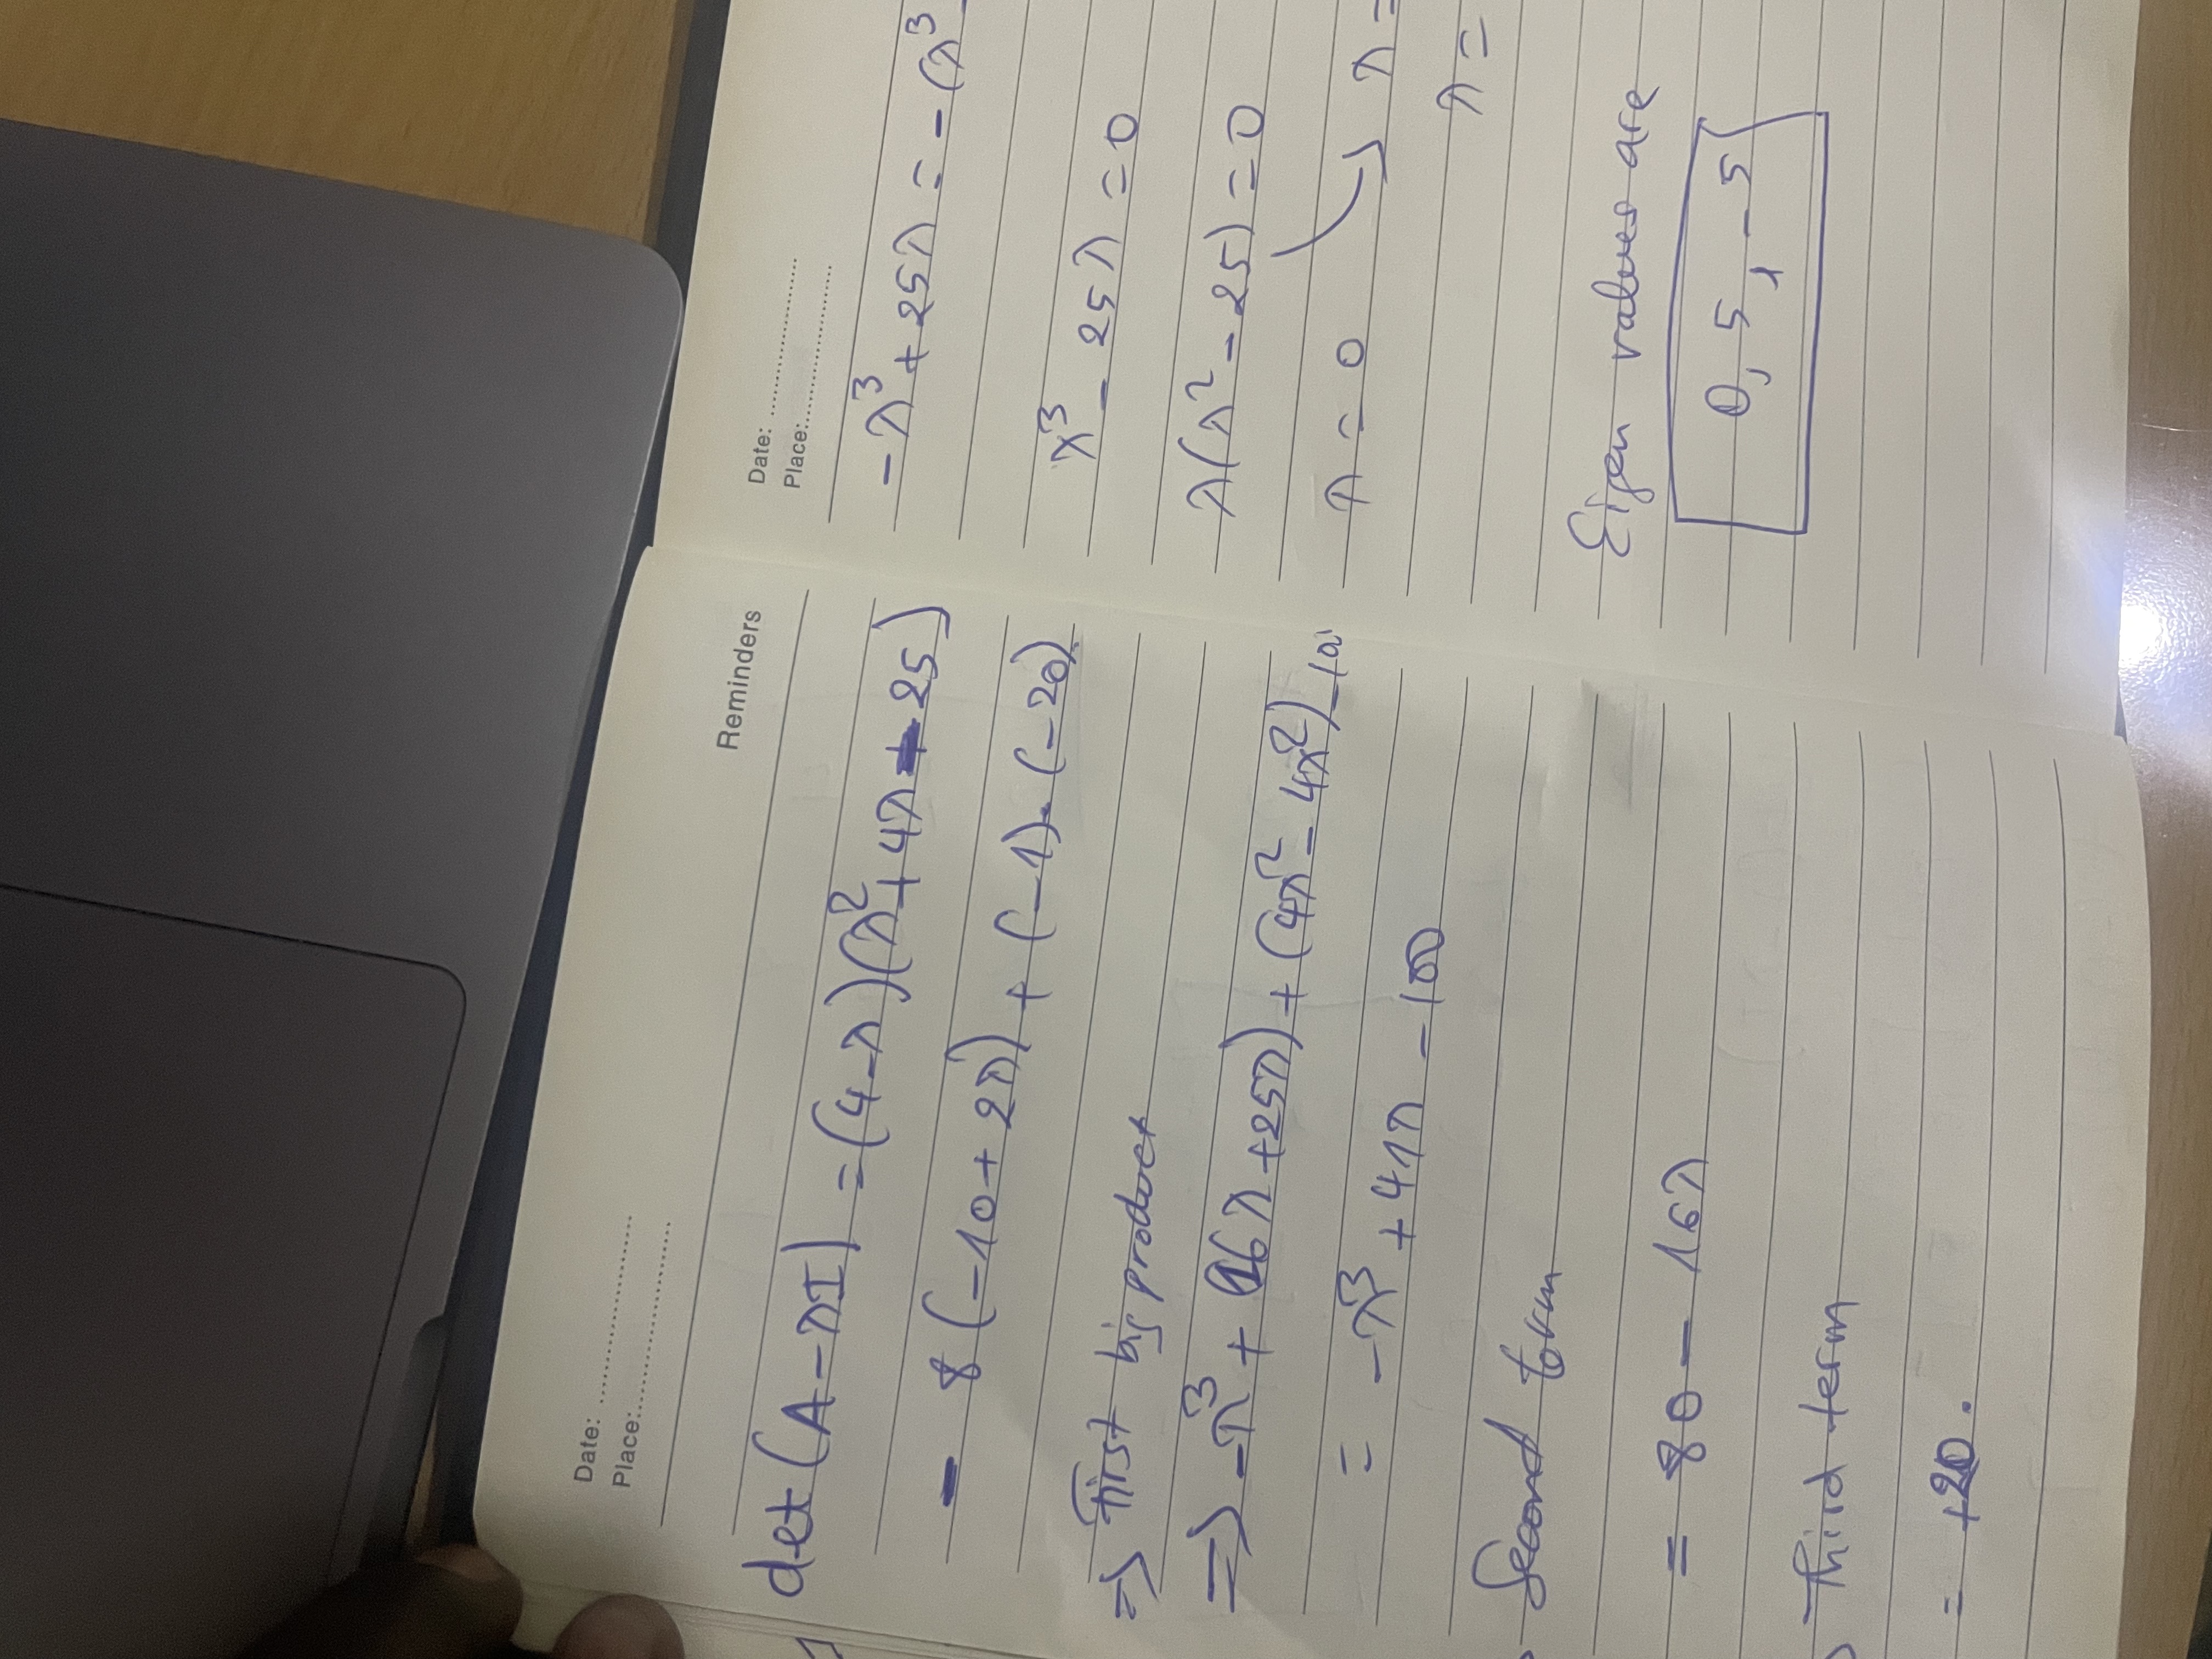 Date: ........................
Place:........................
Reminders
det(A-λI) = (4-λ)(λ²+4λ-25)
- 8(-10+2λ) + (-1). (-20)
=> First big product
=> -λ³ + (16λ+25λ) + (4λ²- 4λ²)-100
= -λ³ +41λ -100
Second term
= 80 - 16λ
Third term
= +20.
Date: ........................
Place:........................
-λ³+25λ = -(λ³
λ³ - 25λ = 0
λ(λ² - 25) = 0
λ = 0 → λ =
λ =
Eigen values are
0, 5, -5